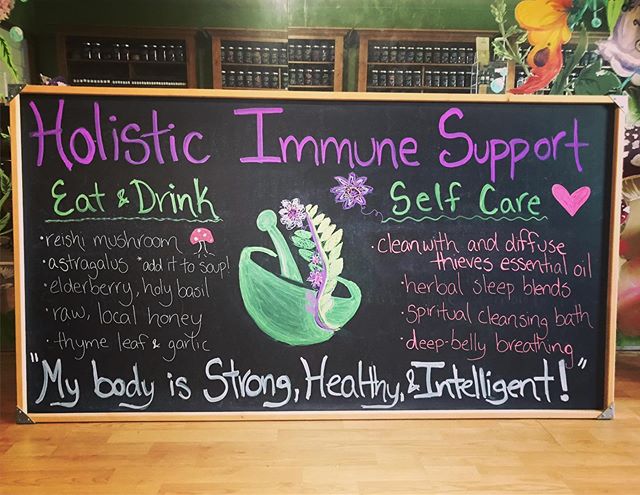 Holistic Immune Support
Eat & Drink
• reishi mushroom
• astragalus *add it to soup!
• elderberry, holy basil
• raw, local honey
• thyme leaf & garlic
Self Care
• clean with and diffuse
thieves essential oil
• herbal sleep blends
• spiritual cleansing bath
• deep-belly breathing
"My body is Strong, Healthy, & Intelligent!"